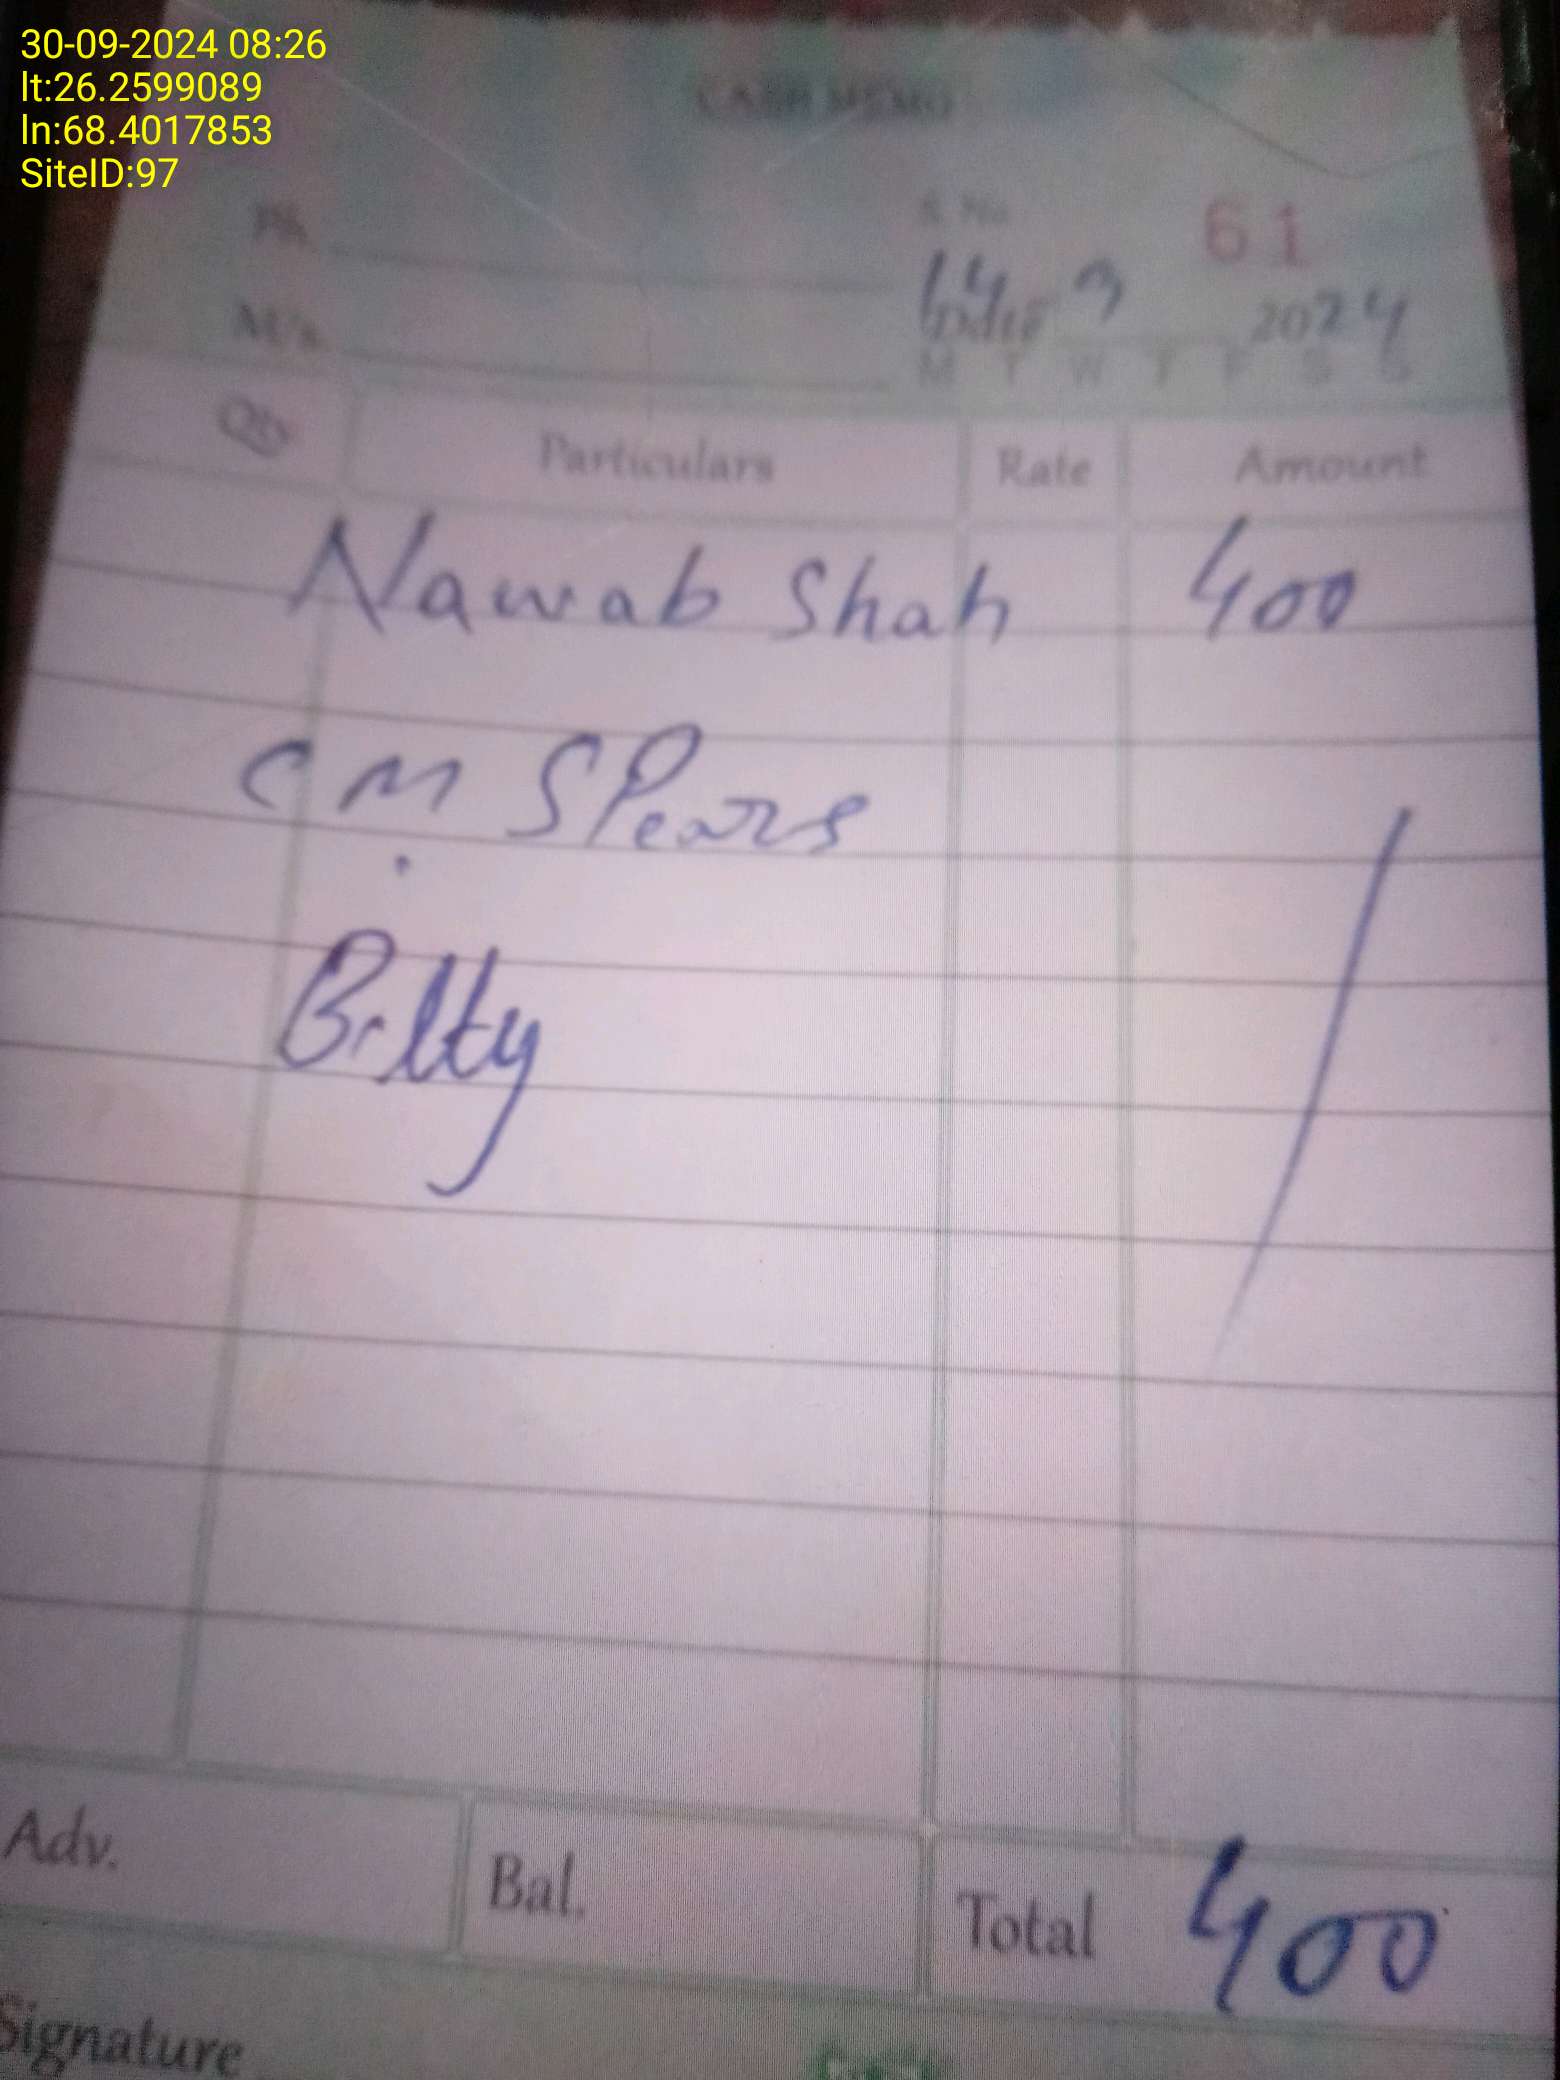 30-09-2024 08:26
lt:26.2599089
ln:68.4017853
SiteID:97
CASH MEMO
Ph.
S. No. 61
M/s.
Date 14 9 2024
M T W T F S S
Qty Particulars Rate Amount
Nawab Shah 400
CM SPears
Bilty
Adv. Bal. Total 400
Signature